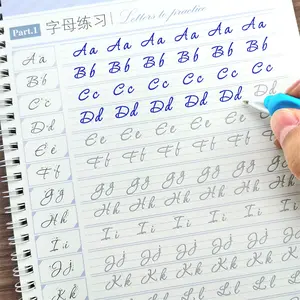 Part.1 字母练习 Letters to practice
Aa Aa Aa Aa Aa Aa Aa
Bb Bb Bb Bb Bb Bb Bb
Cc Cc Cc Cc Cc Cc Cc
Dd Dd Dd Dd Dd Dd Dd
Ee Ee Ee Ee Ee Ee
Ff Ff Ff Ff Ff Ff
Gg Gg Gg Gg Gg Gg
Hh Hh Hh Hh Hh Hh
Ii Ii Ii Ii Ii Ii
Jj Jj Jj Jj Jj Jj
Kk Kk Kk Kk Kk Kk
Ll Ll